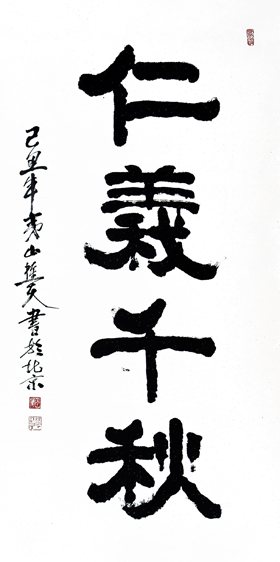 仁義千秋
己丑年夷山樵夫書於北京